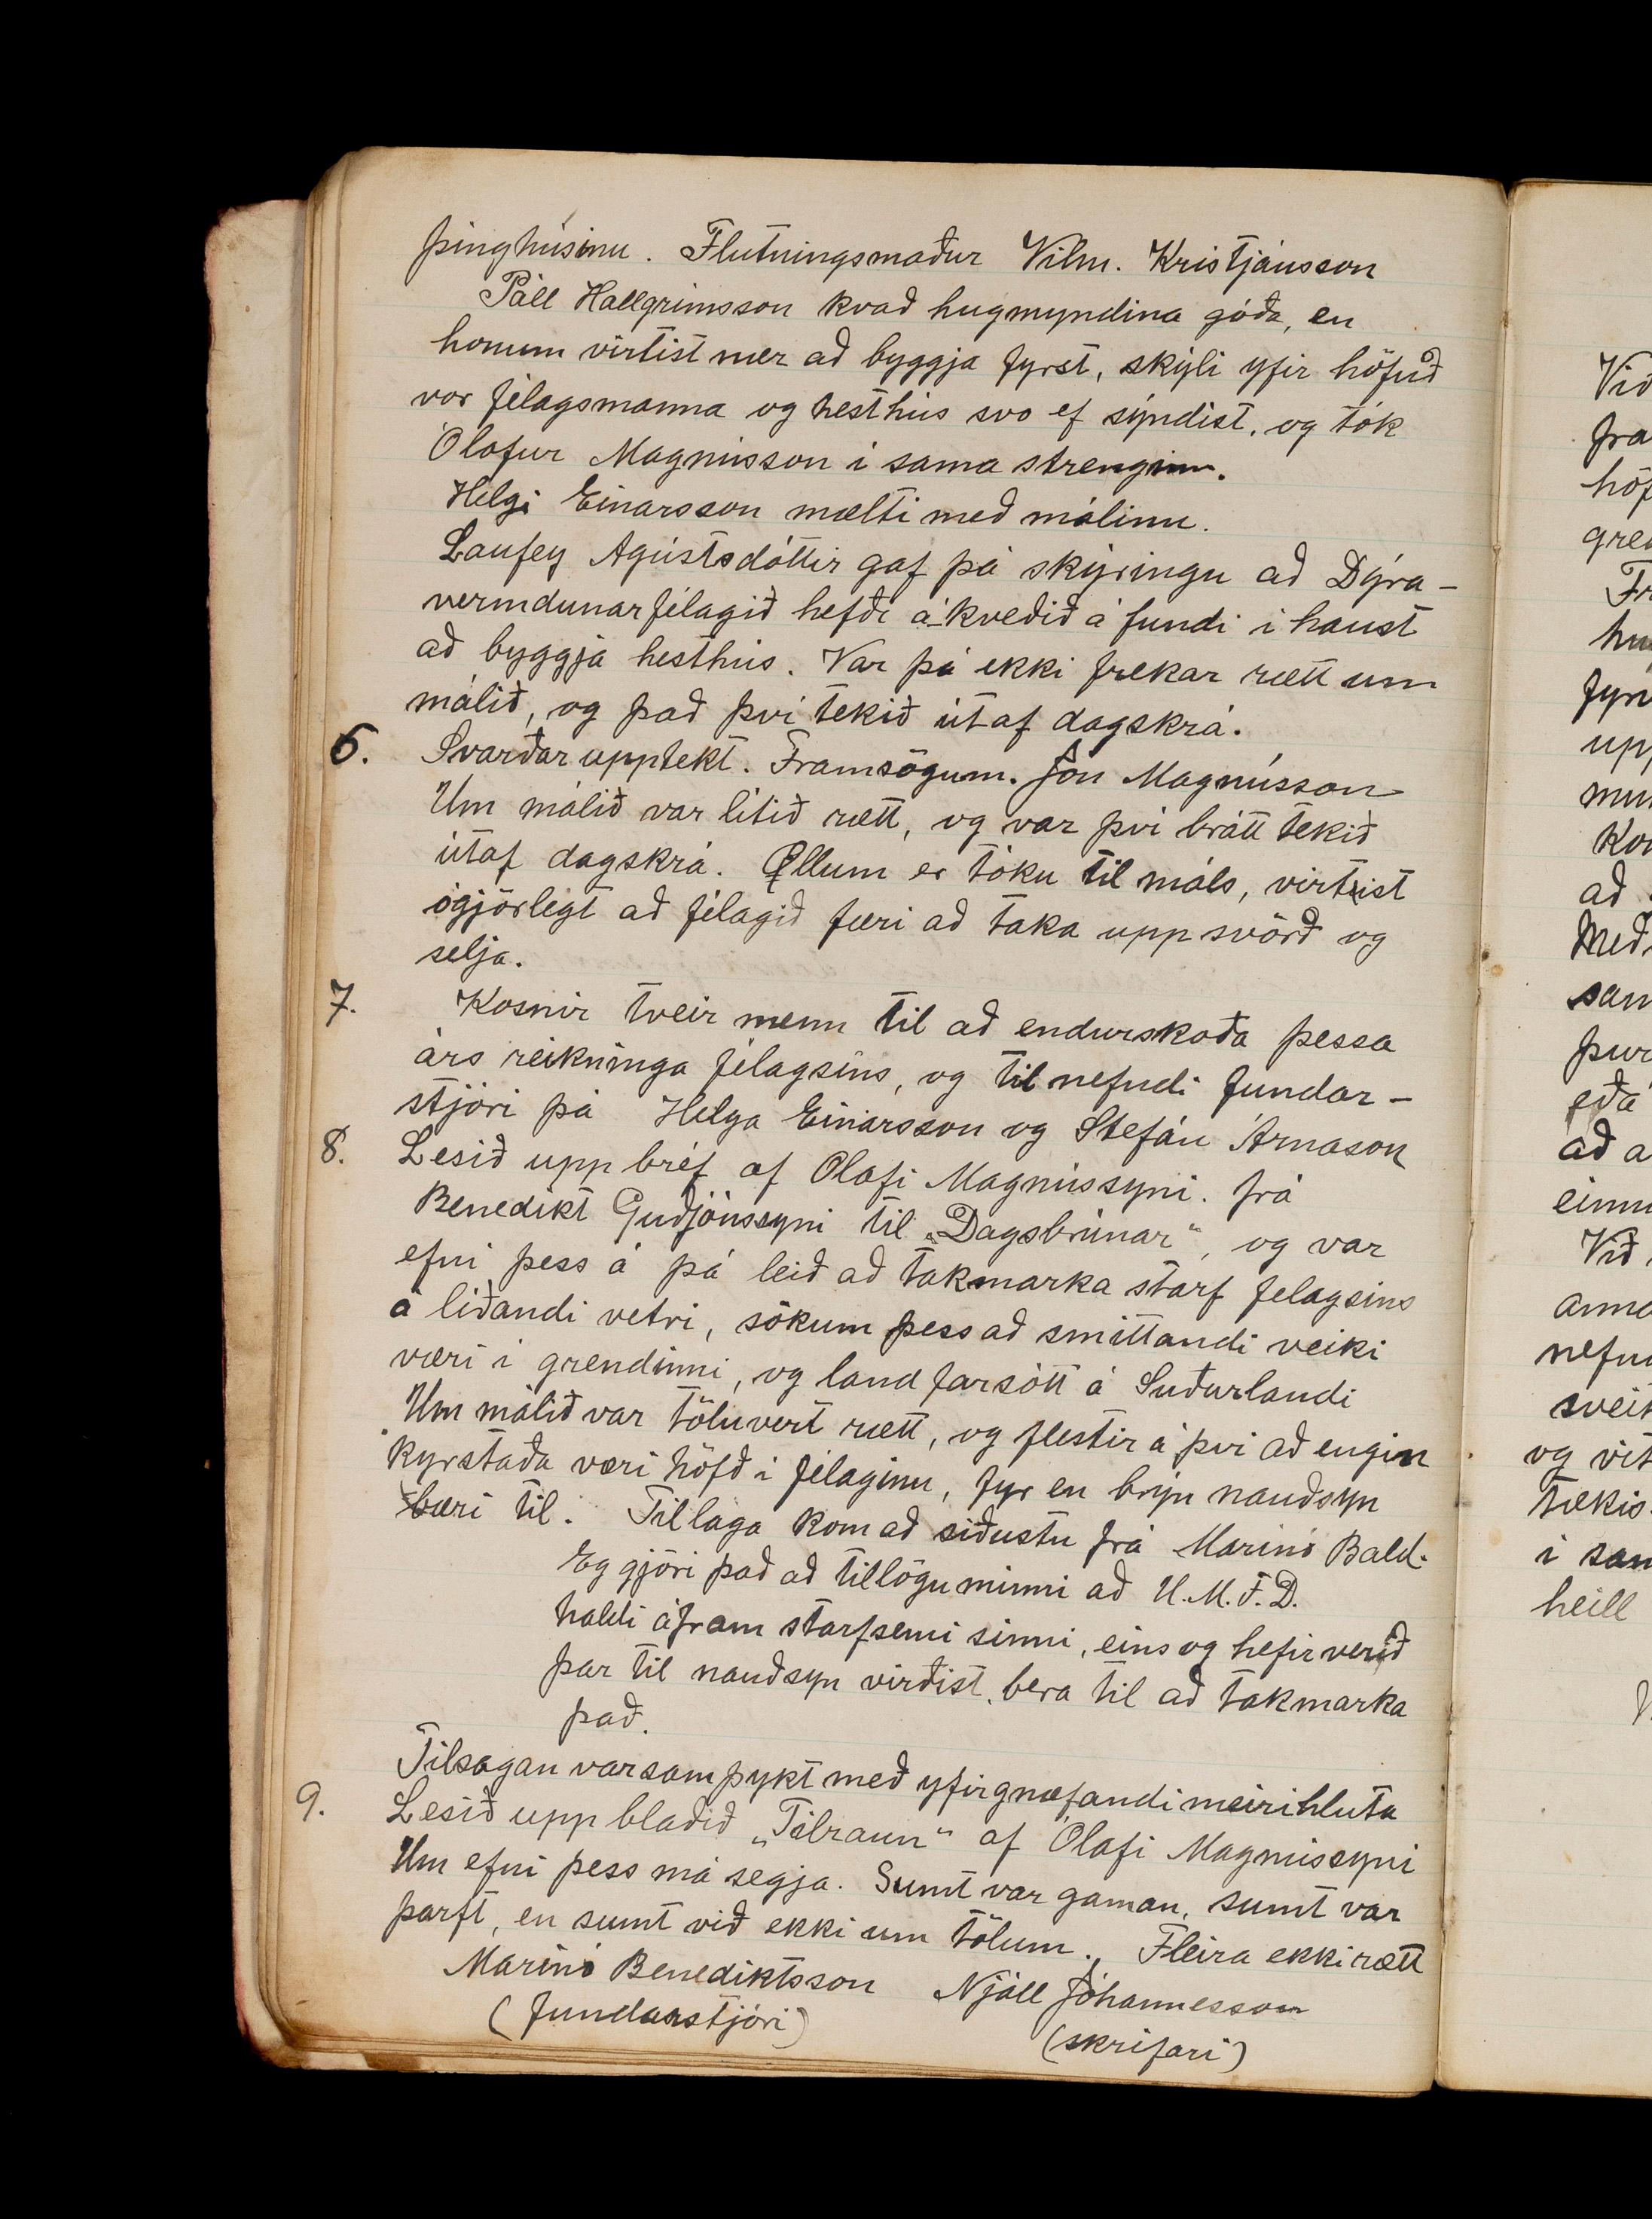 þinghúsinu. Flutningsmaður Vilm. Kristjánsson
Páll Hallgrímsson kvað hugmyndina góða, en
honum virtist nær að byggja fyrst, skýli yfir höfuð
vor félagsmanna og hesthús svo ef sýndist, og tók
Ólafur Magnússon í sama strenginn.
Helgi Einarsson mælti með málinu.
Laufey Agústsdóttir gaf þá skýringu að Dýra-
verndunarfélagið hefði á-kveðið á fundi í haust
að byggja hesthús. Var þá ekki frekar rætt um
málið, og það því tekið útaf dagskrá.
6. Svarðar upptekt. Framsögum. Jón Magnússon
Um málið var lítið rætt, og var því brátt tekið
útaf dagskrá. Öllum er tóku til máls, virtist
ógjörlegt að félagið færi að taka upp svörð og
selja.
7. Kosnir tveir menn til að endurskoða þessa
árs reikninga félagsins, og til nefndi fundar-
stjóri þá Helga Einarsson og Stefán Árnason
8. Lesið upp bréf af Olafi Magnússyni. frá
Benedikt Guðjónssyni til „Dagsbrúnar", og var
efni þess á þá leið að takmarka starf felagsins
á líðandi vetri, sökum þess að smittandi veiki
væri í grendinni, og land farsótt á Suðurlandi
Um málið var töluvert rætt, og flestir á því að engin
kyrstaða væri höfð í félaginu, fyr en brýn nauðsyn
bæri til. Tillaga kom að síðustu frá Marinó Bald.
Eg gjöri það að tillögu minni að U.M.F.D.
haldi áfram starfsemi sinni, eins og hefir verið
þar til nauðsyn virðist, bera til að takmarka
það.
Tilsagan var samþykt með yfirgnæfandi meirihluta
9. Lesið upp blaðið „Tilraun" af Ólafi Magnússyni
Um efni þess má segja. Sumt var gaman, sumt var
þarft, en sumt við ekki um tölum., Fleira ekki rætt
Marinó Benediktsson Njáll Jóhannesson
(fundarstjóri) (skrifari)
Við
fra
höf
Fr
fyr
upp
mun
Kom
að
Með
sam
þur
eða
að a
einn
Við
anna
nefn
sveit
og vit
tækis
í sam
heill